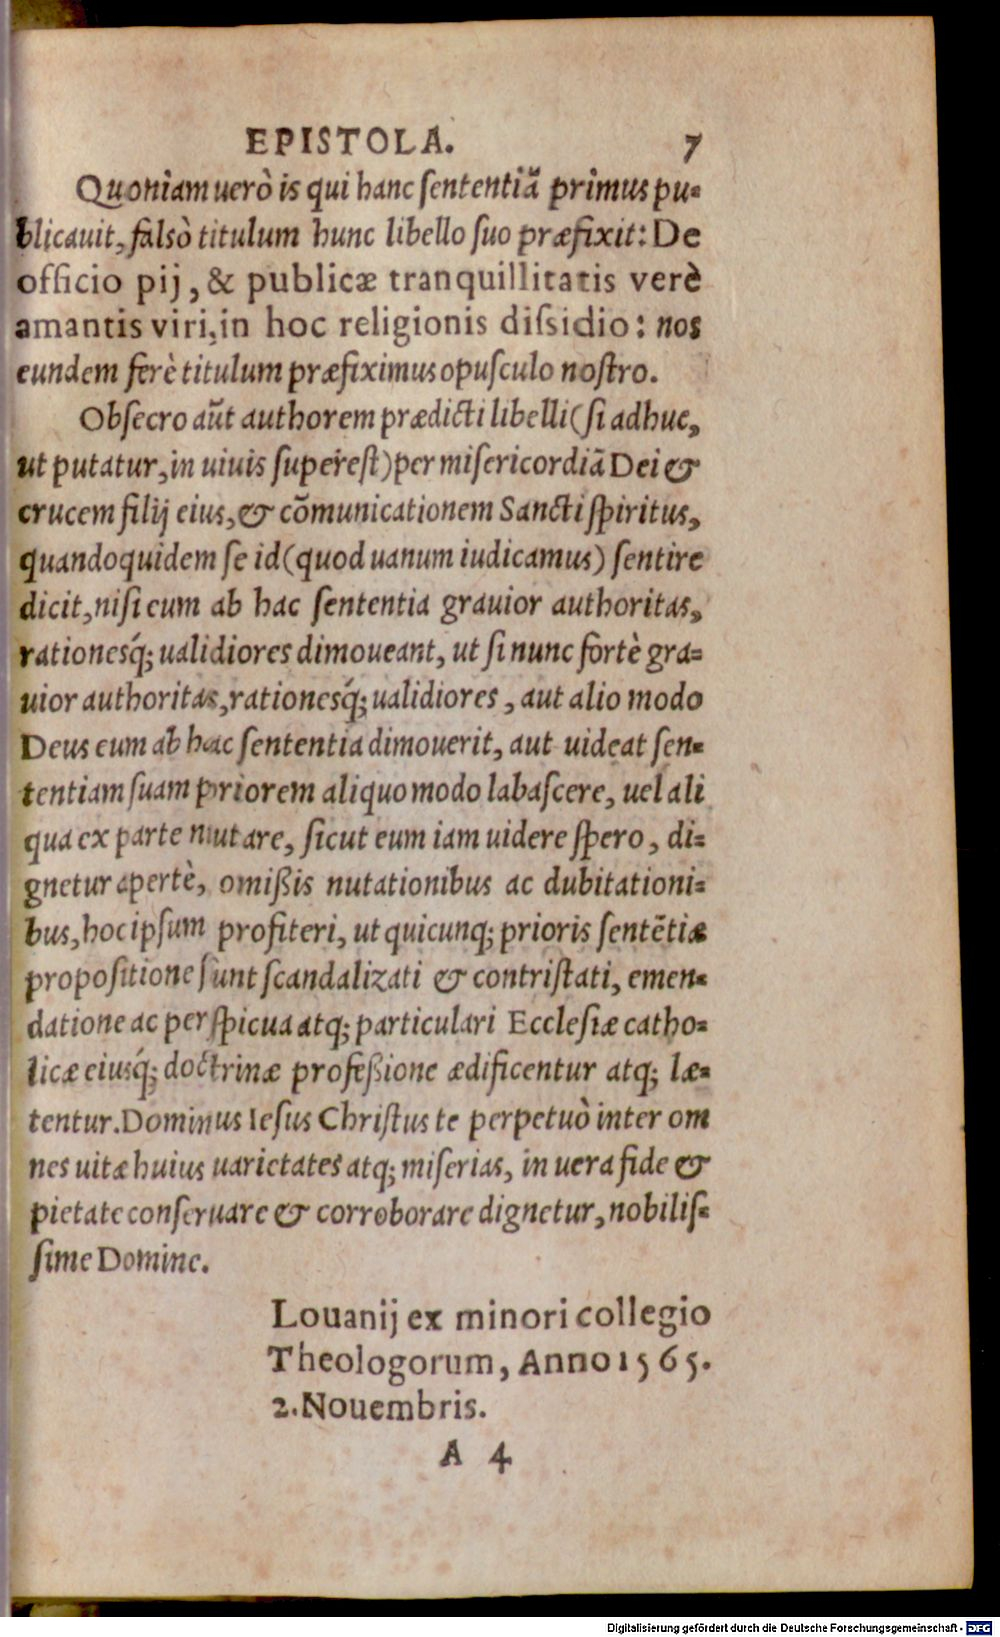 EPISTOLA. 7
Quoniam uerò is qui hanc ſententiã primus pu-
blicauit, falsò titulum hunc libello ſuo præfixit: De
officio pij, & publicæ tranquillitatis verè
amantis viri, in hoc religionis diſsidio: nos
eundem ferè titulum præfiximus opuſculo noſtro.
Obſecro aũt authorem prædicti libelli (ſi adhuc,
ut putatur, in uiuis ſupereſt) per miſericordiã Dei &
crucem filij eius, & cõmunicationem Sancti ſpiritus,
quandoquidem ſe id (quod uanum iudicamus) ſentire
dicit, niſi eum ab hac ſententia grauior authoritas,
rationesq́; ualidiores dimoueant, ut ſi nunc fortè gra-
uior authoritas, rationesq́; ualidiores, aut alio modo
Deus eum ab hac ſententia dimouerit, aut uideat ſen-
tentiam ſuam priorem aliquo modo labaſcere, uel ali
qua ex parte mutare, ſicut eum iam uidere ſpero, di-
gnetur apertè, omißis nutationibus ac dubitationi-
bus, hoc ipſum profiteri, ut quicunq; prioris ſentẽtiæ
propoſitione ſunt ſcandalizati & contriſtati, emen-
datione ac perſpicua atq; particulari Eccleſiæ catho-
licæ eiusq́; doctrinæ profeßione ædificentur atq; læ-
tentur. Dominus Ieſus Chriſtus te perpetuò inter om
nes uitæ huius uarietates atq; miſerias, in uera fide &
pietate conſeruare & corroborare dignetur, nobiliſ-
ſime Domine.
Louanij ex minori collegio
Theologorum, Anno 1565.
2. Nouembris.
A 4
Digitalisierung gefördert durch die Deutsche Forschungsgemeinschaft - DFG